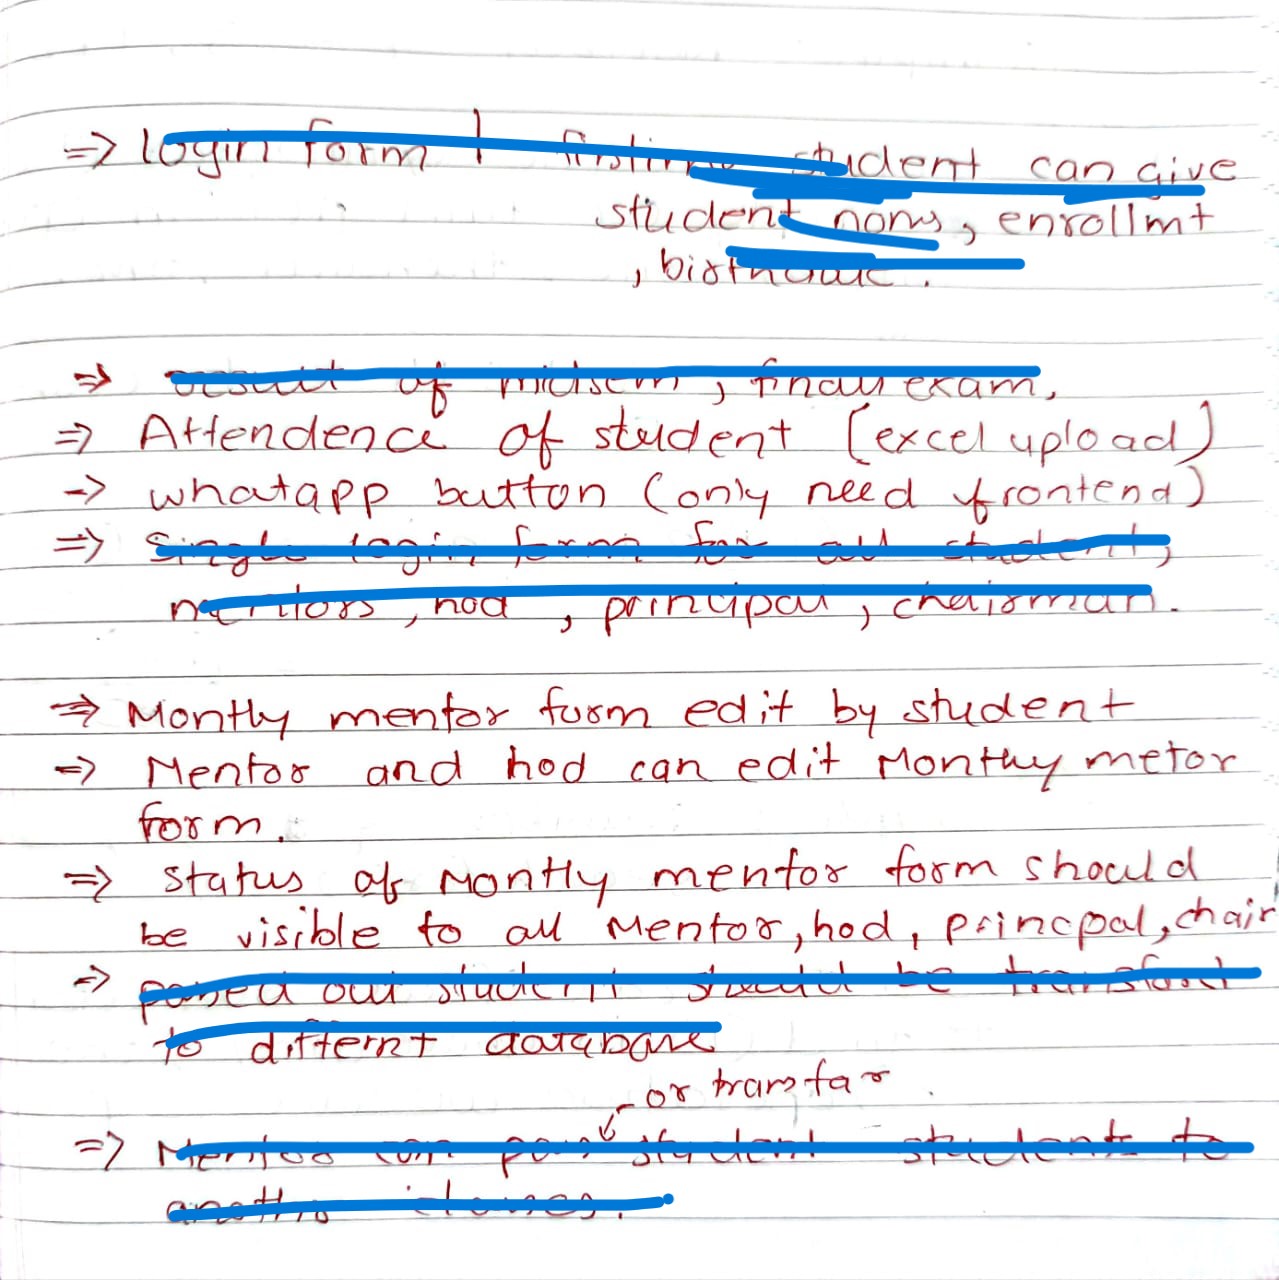 => login form | firstime student can give
student , enrollmt
, birthdate .
=> result of midsem , final exam,
=> Attendence of student (excel upload)
-> whatapp button (only need frontend)
=> Single login form for all student,
mentors , hod , principal , chairman.
=> Montly mentor form edit by student
=> Mentor and hod can edit Monthy metor
form.
=> status of Montly mentor form should
be visible to all Mentor, hod, princpal, chair
=> student should be
to differnt database
or transfar
=> Mentor can student students to